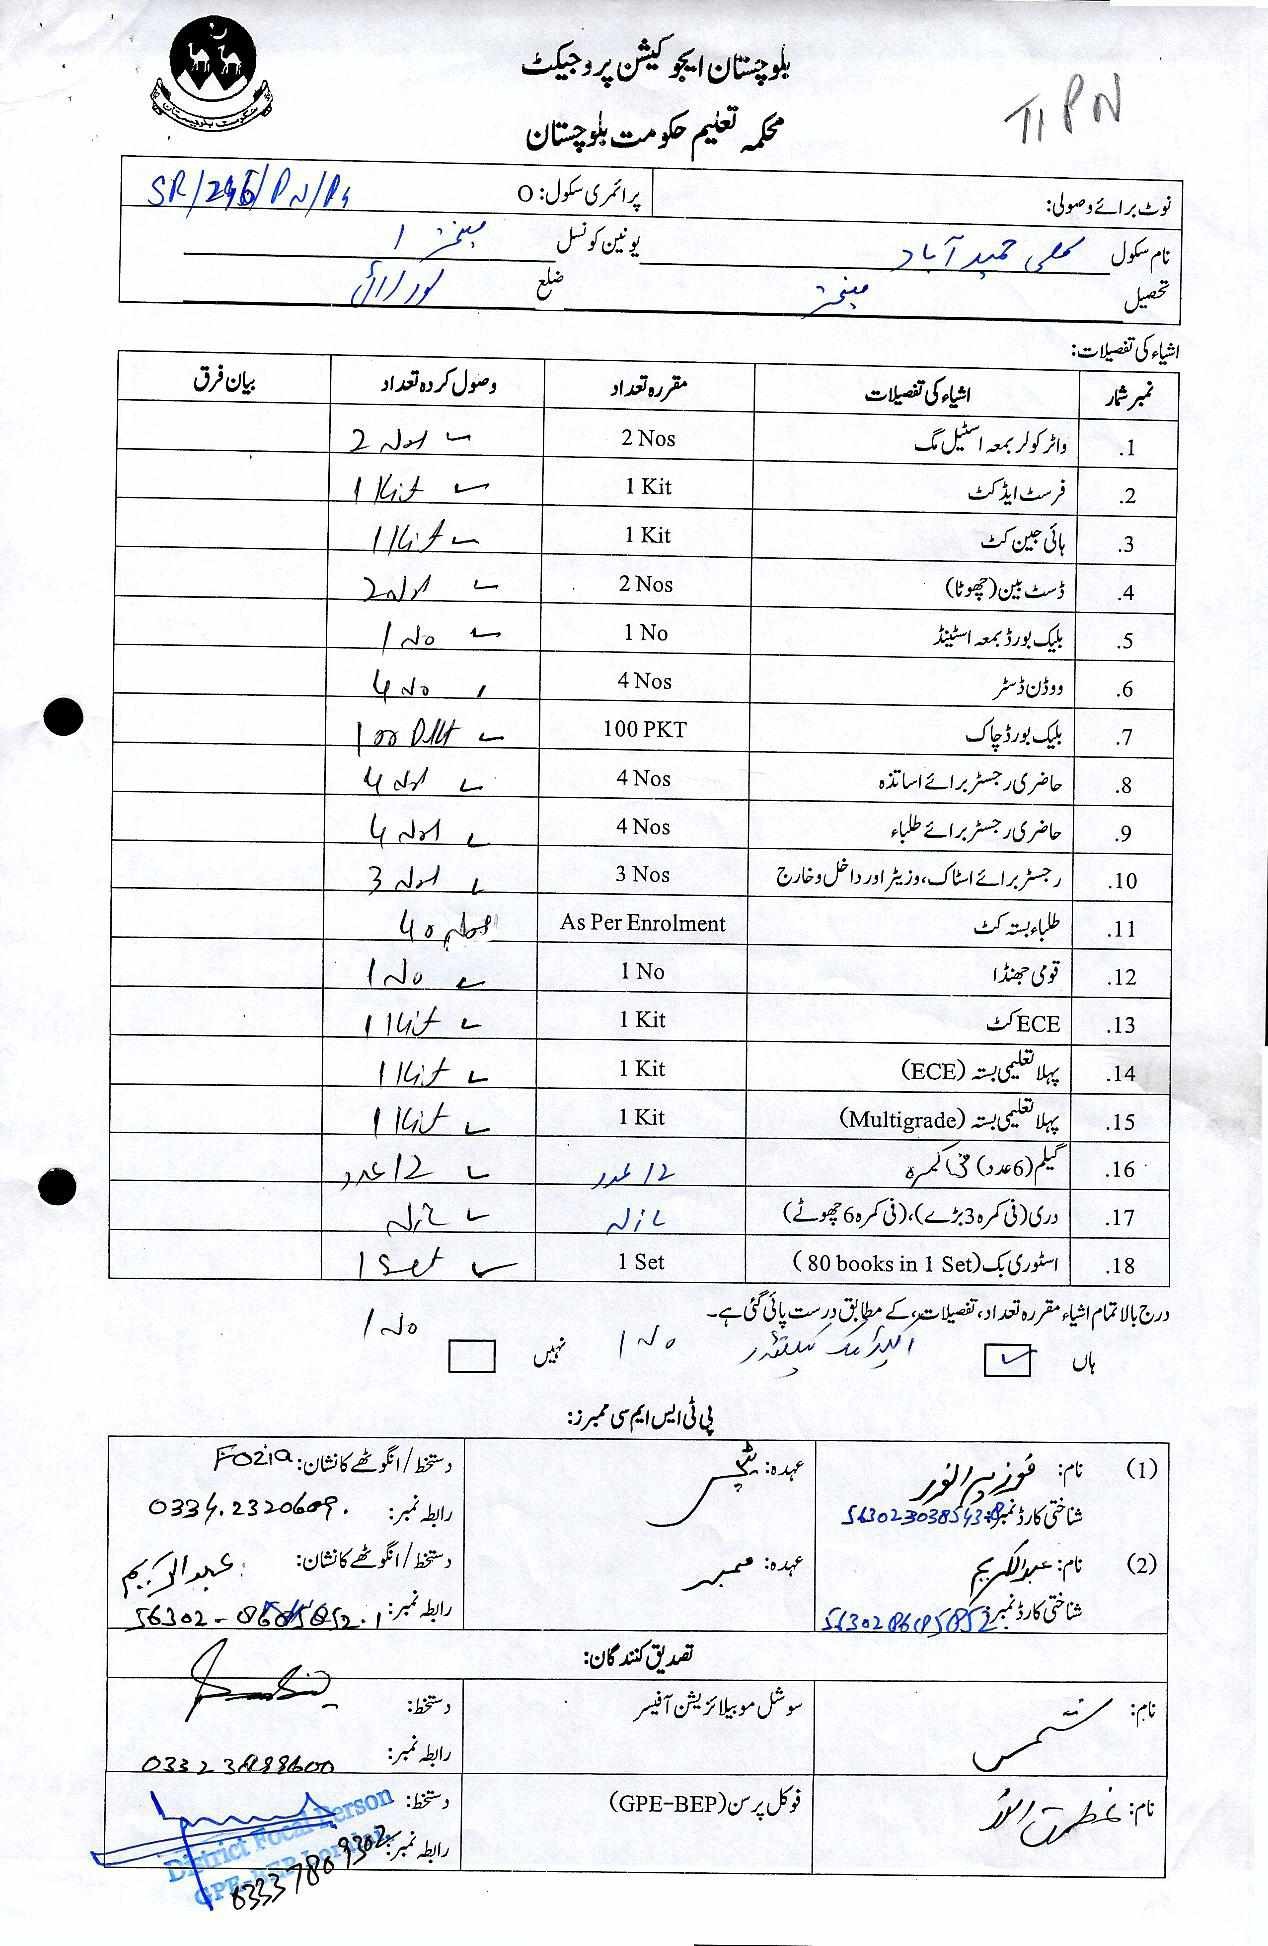 بلوچستان ایجوکیشن پروجیکٹ
محکمہ تعلیم حکومت بلوچستان
TI PN
نوٹ برائے وصولی: پرائمری سکول: O
نام سکول کلی حمید آباد یونین کونسل میختر 1
تحصیل میختر ضلع لورالائی
اشیاء کی تفصیلات:
نمبر شمار اشیاء کی تفصیلات مقررہ تعداد وصول کردہ تعداد بیان فرق
1. واٹر کولر بمعہ اسٹیل مگ 2 Nos 2 Nos
2. فرسٹ ایڈ کٹ 1 Kit 1 Kit
3. ہائی جین کٹ 1 Kit 1 Kit
4. ڈسٹ بین (چھوٹا) 2 Nos 2 Nos
5. بلیک بورڈ بمعہ اسٹینڈ 1 No 1 No
6. ووڈن ڈسٹر 4 Nos 4 No
7. بلیک بورڈ چاک 100 PKT 100 PKt
8. حاضری رجسٹر برائے اساتذہ 4 Nos 4 Nos
9. حاضری رجسٹر برائے طلباء 4 Nos 4 Nos
10. رجسٹر برائے اسٹاک، وزیٹر اور داخل و خارج 3 Nos 3 Nos
11. طلباء بستہ کٹ As Per Enrolment 40 Nos
12. قومی جھنڈا 1 No 1 No
13. ECE کٹ 1 Kit 1 Kit
14. پہلا تعلیمی بستہ (ECE) 1 Kit 1 Kit
15. پہلا تعلیمی بستہ (Multigrade) 1 Kit 1 Kit
16. گیلم (6 عدد) فی کمرہ 12 عدد 12 عدد
17. دری (فی کمرہ 3 بڑے)، (فی کمرہ 6 چھوٹے)
18. اسٹوری بک (80 books in 1 Set) 1 Set 1 Set
درج بالا تمام اشیاء مقررہ تعداد، تفصیلات، کے مطابق درست پائی گئی ہے۔
1 No
ہاں اکیڈمک کیلنڈر 1 No نہیں
پی ٹی ایس ایم سی ممبرز:
(1) نام: فوزیہ انور عہدہ: دستخط/انگوٹھے کا نشان: Fozia
شناختی کارڈ نمبر: رابطہ نمبر: 0334.2320609
(2) نام: عبدالکریم عہدہ: ممبر دستخط/انگوٹھے کا نشان: عبدالکریم
شناختی کارڈ نمبر: رابطہ نمبر:
تصدیق کنندگان:
نام: شمس سوشل موبیلائزیشن آفیسر دستخط:
رابطہ نمبر:
نام: عظمت اللہ فوکل پرسن (GPE-BEP) دستخط:
رابطہ نمبر: 03337809302
District Focal Person
GPE-BEP Loralai